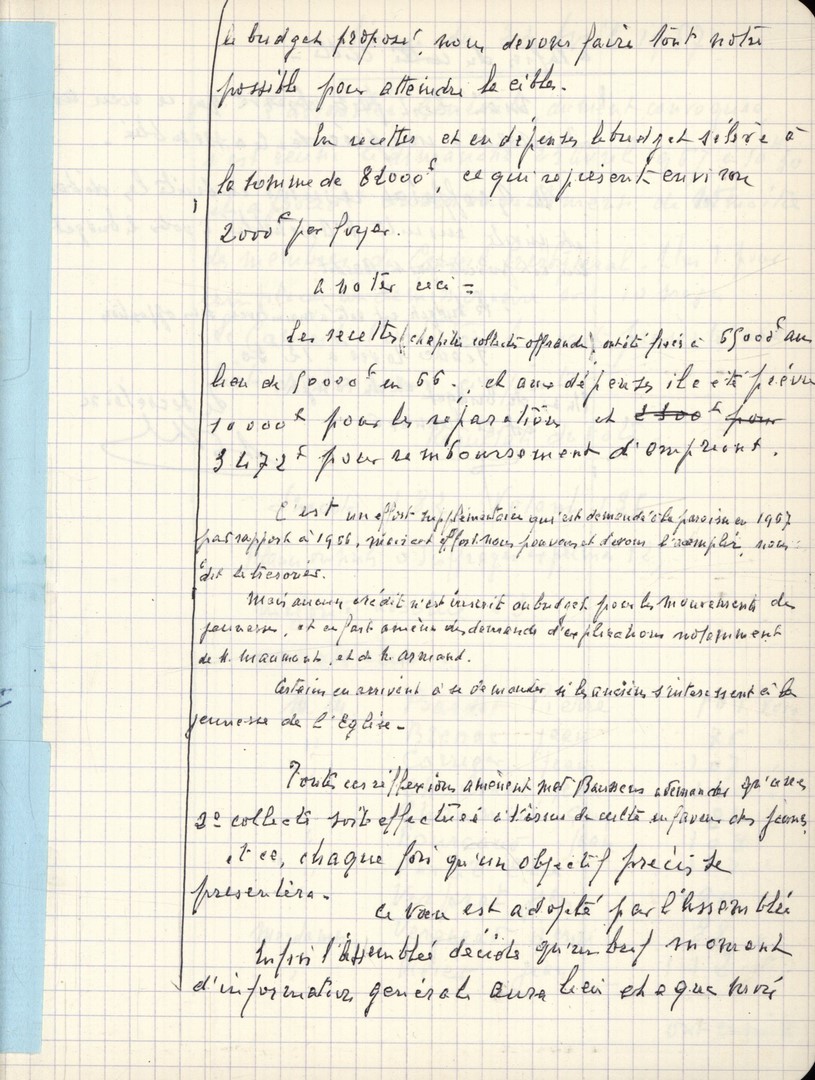 le budget proposé, nous devons faire tout notre
possible pour atteindre la cible.
En recettes et en dépenses le budget s'élève à
la somme de 82000 F, ce qui représente environ
2000 F par foyer.
a noter ceci =
Les recettes (chapitre collectes offrandes) ont été fixés à 65000 F au
lieu de 50000 F en 66., et aux dépenses il a été prévu
10000 F pour les réparations et pour
3472 F pour remboursement d'emprunt.
C'est un effort supplémentaire qui est demandé à la paroisse en 1967
par rapport à 1966, mais cet effort nous pouvons et devons l'accomplir, nous
dit le trésorier.
Mais aucun crédit n'est inscrit au budget pour les mouvements de
jeunesse, et ce fait amène des demandes d'explications notamment
de M. Maumont, et de M. Armand.
Certains en arrivent à se demander si les anciens s'interessent à la
jeunesse de l'Eglise -
Toutes ces réflexions amènent à demander qu'une
2e collecte soit effectuée à l'issue du culte en faveur des jeunes,
et ce, chaque fois qu'un objectif précis se
presentera.
Ce voeu est adopté par l'Assemblée
Enfin l'Assemblée décide qu'un bref moment
d'information générale aura lieu chaque